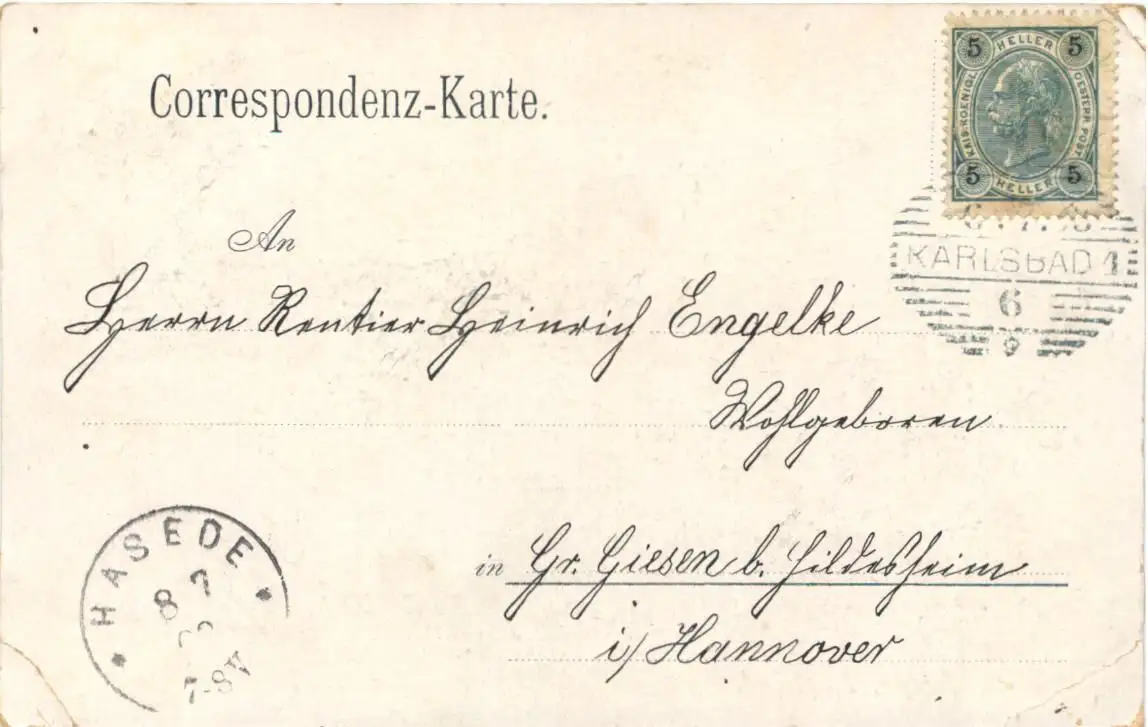 Correspondenz-Karte.
5 HELLER 5
KAIS. KOENIGL. OESTERR. POST.
5 HELLER 5
KARLSBAD 1
6
An
Herrn Rentier Heinrich Engelke
Wohlgeboren
HASEDE
8 7
7-8V
in Gr. Giesen b. Hildesheim
i/ Hannover